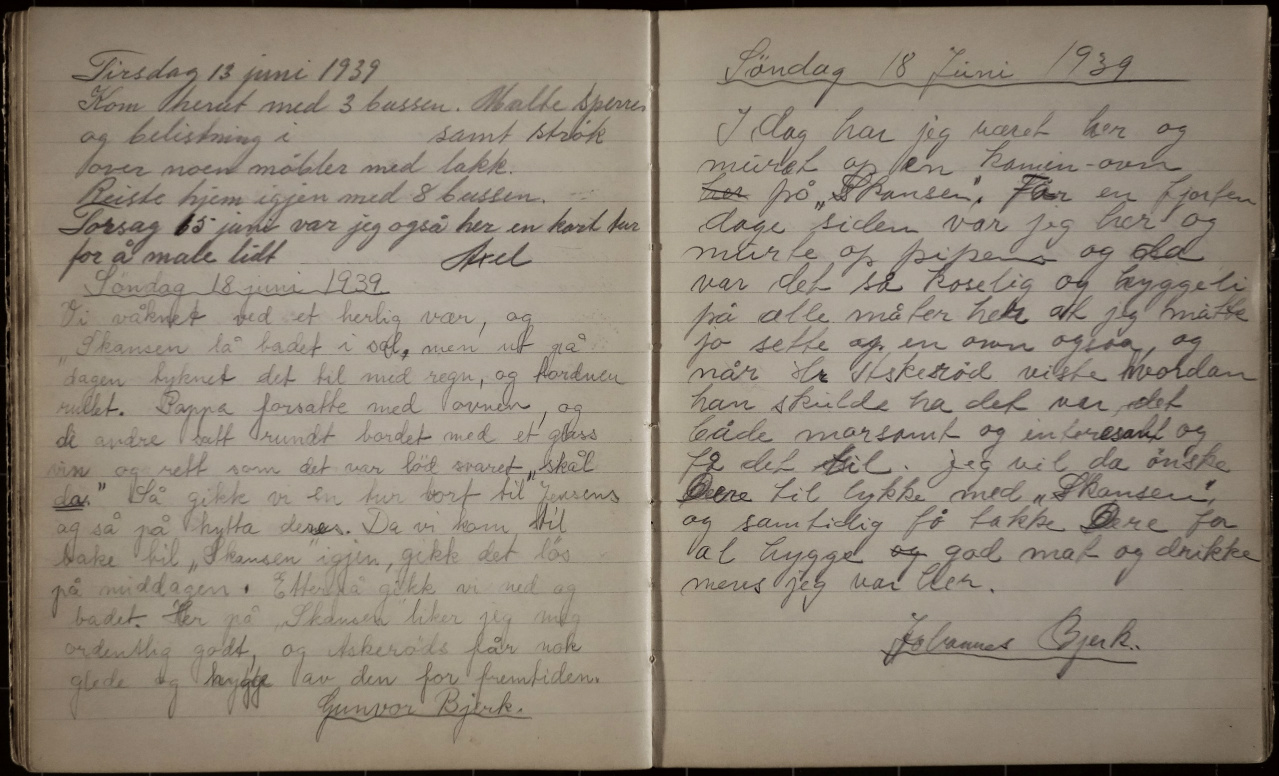 Tirsdag 13 juni 1939
Kom herut med 3 bussen. Malte Sperrer
og belistning i samt strøk
over noen møbler med lakk.
Reiste hjem igjen med 8 bussen.
Torsag 15 juni var jeg også her en kort tur
for å male lidt Axel
Søndag 18 juni 1939
Vi våknet ved et herlig vær, og
„Skansen lå badet i sol, men ut på
dagen tyknet det til med regn, og tordnen
rullet. Pappa forsatte med ovnen, og
de andre satt rundt bordet med et glass
vin og rett som det var lød svaret „skål
da." Så gikk vi en tur bort til Jensens
og så på hytta deres. Da vi kom til
bake til „Skansen" igjen, gikk det løs
på middagen. Etterpå gikk vi ned og
badet. Her på „Skansen" liker jeg meg
ordentlig godt, og Askerøds får nok
glede og hygge av den for fremtiden.
Gunvor Bjerk.
Søndag 18 Juni 1939
I dag har jeg været her og
muret op en kamin-ovn
her på „Skansen". Før en fjorten
dage siden var jeg her og
murte op pipena og da
var det så koselig og hyggeli
på alle måter her at jeg måtte
jo sette op en ovn ogsaa, og
når Hr Askerød viste hvordan
han skulde ha det var det
både morsomt og interesant og
få det til. jeg vil da ønske
Dere til lykke med „Skansen",
og samtidig få takke Dere for
al hygge og god mat og drikke
mens jeg var her.
Johannes Bjerk.